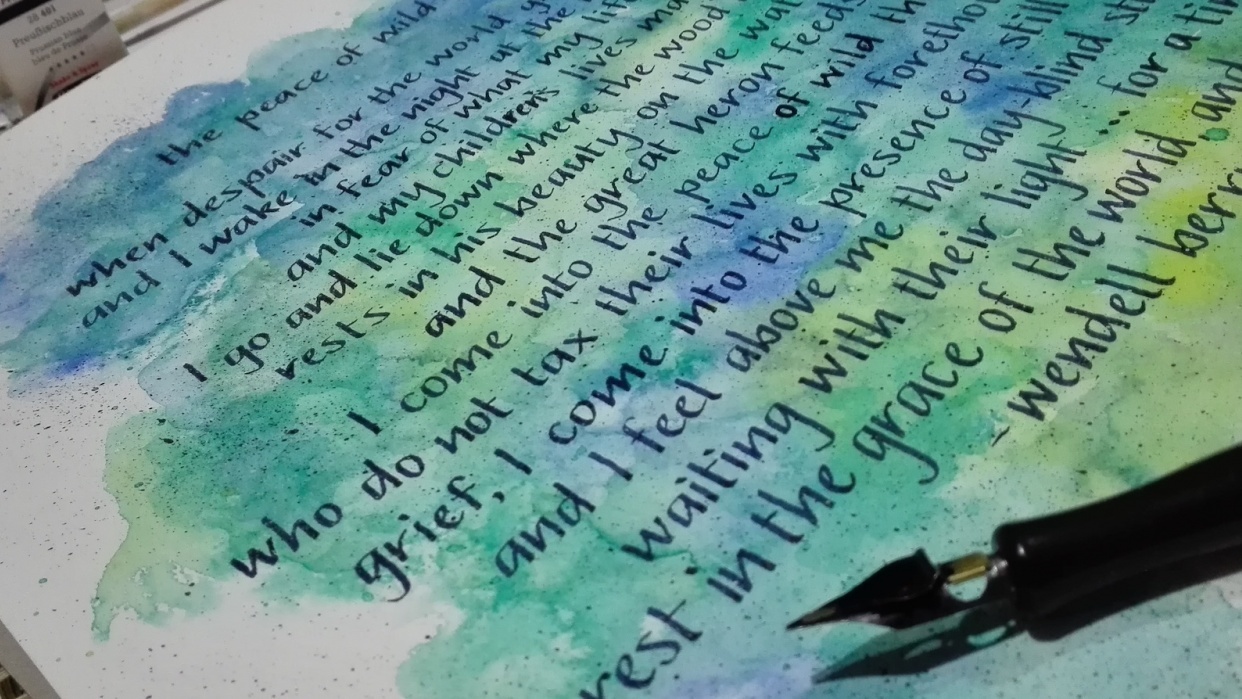 Preußischblau
Prussian blue
bleu de Prusse
the peace of wild
when despair for the world
and I wake in the night at the
in fear of what my
and my children's lives
I go and lie down where the wood
rests in his beauty on the
and the great heron feeds
I come into the peace of wild
who do not tax their lives with
grief. I come into the presence of still
and I feel above me the day-blind
waiting with their light ... for a
rest in the grace of the world, and
- wendell berry